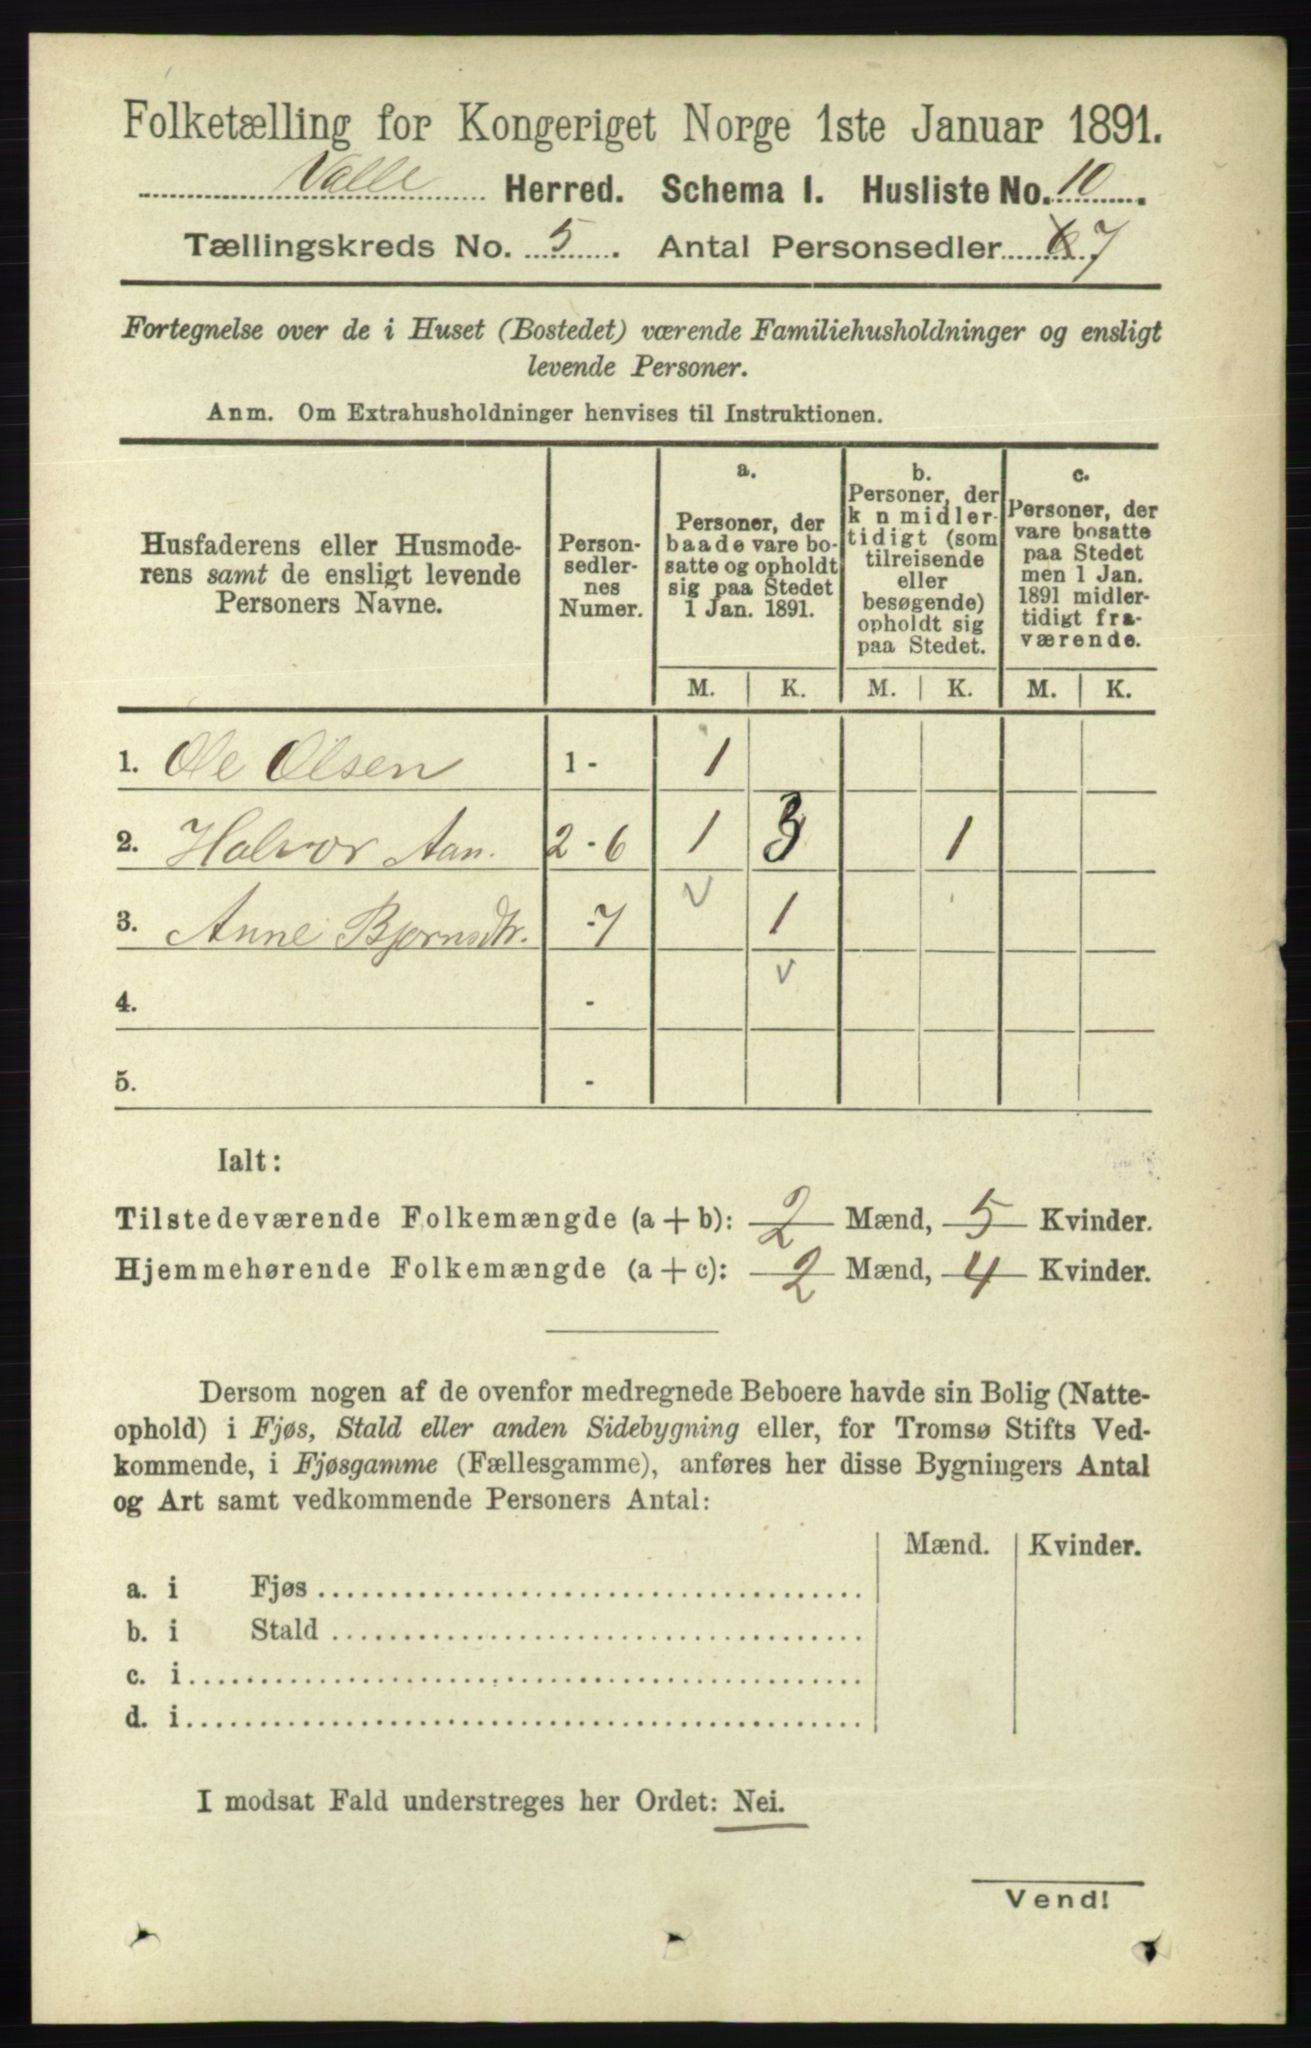 Folketælling for Kongeriget Norge 1ste Januar 1891.
Valle Herred. Schema I. Husliste No. 10.
Tællingskreds No. 5. Antal Personsedler 7
Fortegnelse over de i Huset (Bostedet) værende Familiehusholdninger og ensligt
levende Personer.
Anm. Om Extrahusholdninger henvises til Instruktionen.
Husfaderens eller Husmode-
rens samt de ensligt levende
Personers Navne.
Person-
sedler-
nes
Numer.
a.
Personer, der
baade vare bo-
satte og opholdt
sig paa Stedet
1 Jan. 1891.
b.
Personer, der
k n midler-
tidigt (som
tilreisende
eller
besøgende)
opholdt sig
paa Stedet.
c.
Personer, der
vare bosatte
paa Stedet
men 1 Jan.
1891 midler-
tidigt fra-
værende.
M. K. M. K. M. K.
1. Ole Olsen 1 - 1
2. Halvor Aan. 2 - 6 1 3 1
3. Anne Bjørnsdtr. - 7 v 1
4. - v
5. -
Ialt:
Tilstedeværende Folkemængde (a + b): 2 Mænd, 5 Kvinder.
Hjemmehørende Folkemængde (a + c): 2 Mænd, 4 Kvinder.
Dersom nogen af de ovenfor medregnede Beboere havde sin Bolig (Natte-
ophold) i Fjøs, Stald eller anden Sidebygning eller, for Tromsø Stifts Ved-
kommende, i Fjøsgamme (Fællesgamme), anføres her disse Bygningers Antal
og Art samt vedkommende Personers Antal:
Mænd. Kvinder.
a. i Fjøs
b. i Stald
c. i
d. i
I modsat Fald understreges her Ordet: Nei.
Vend!